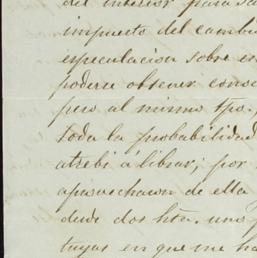 del interior para sa
impuesto del cambi
especulacion sobre es
poderse obtener cons
pero al mismo tpo.
toda la probabilidad
atrebi a librar; por
aprovechawn de ella
desde dos hta. uno
tuyas en que me ha